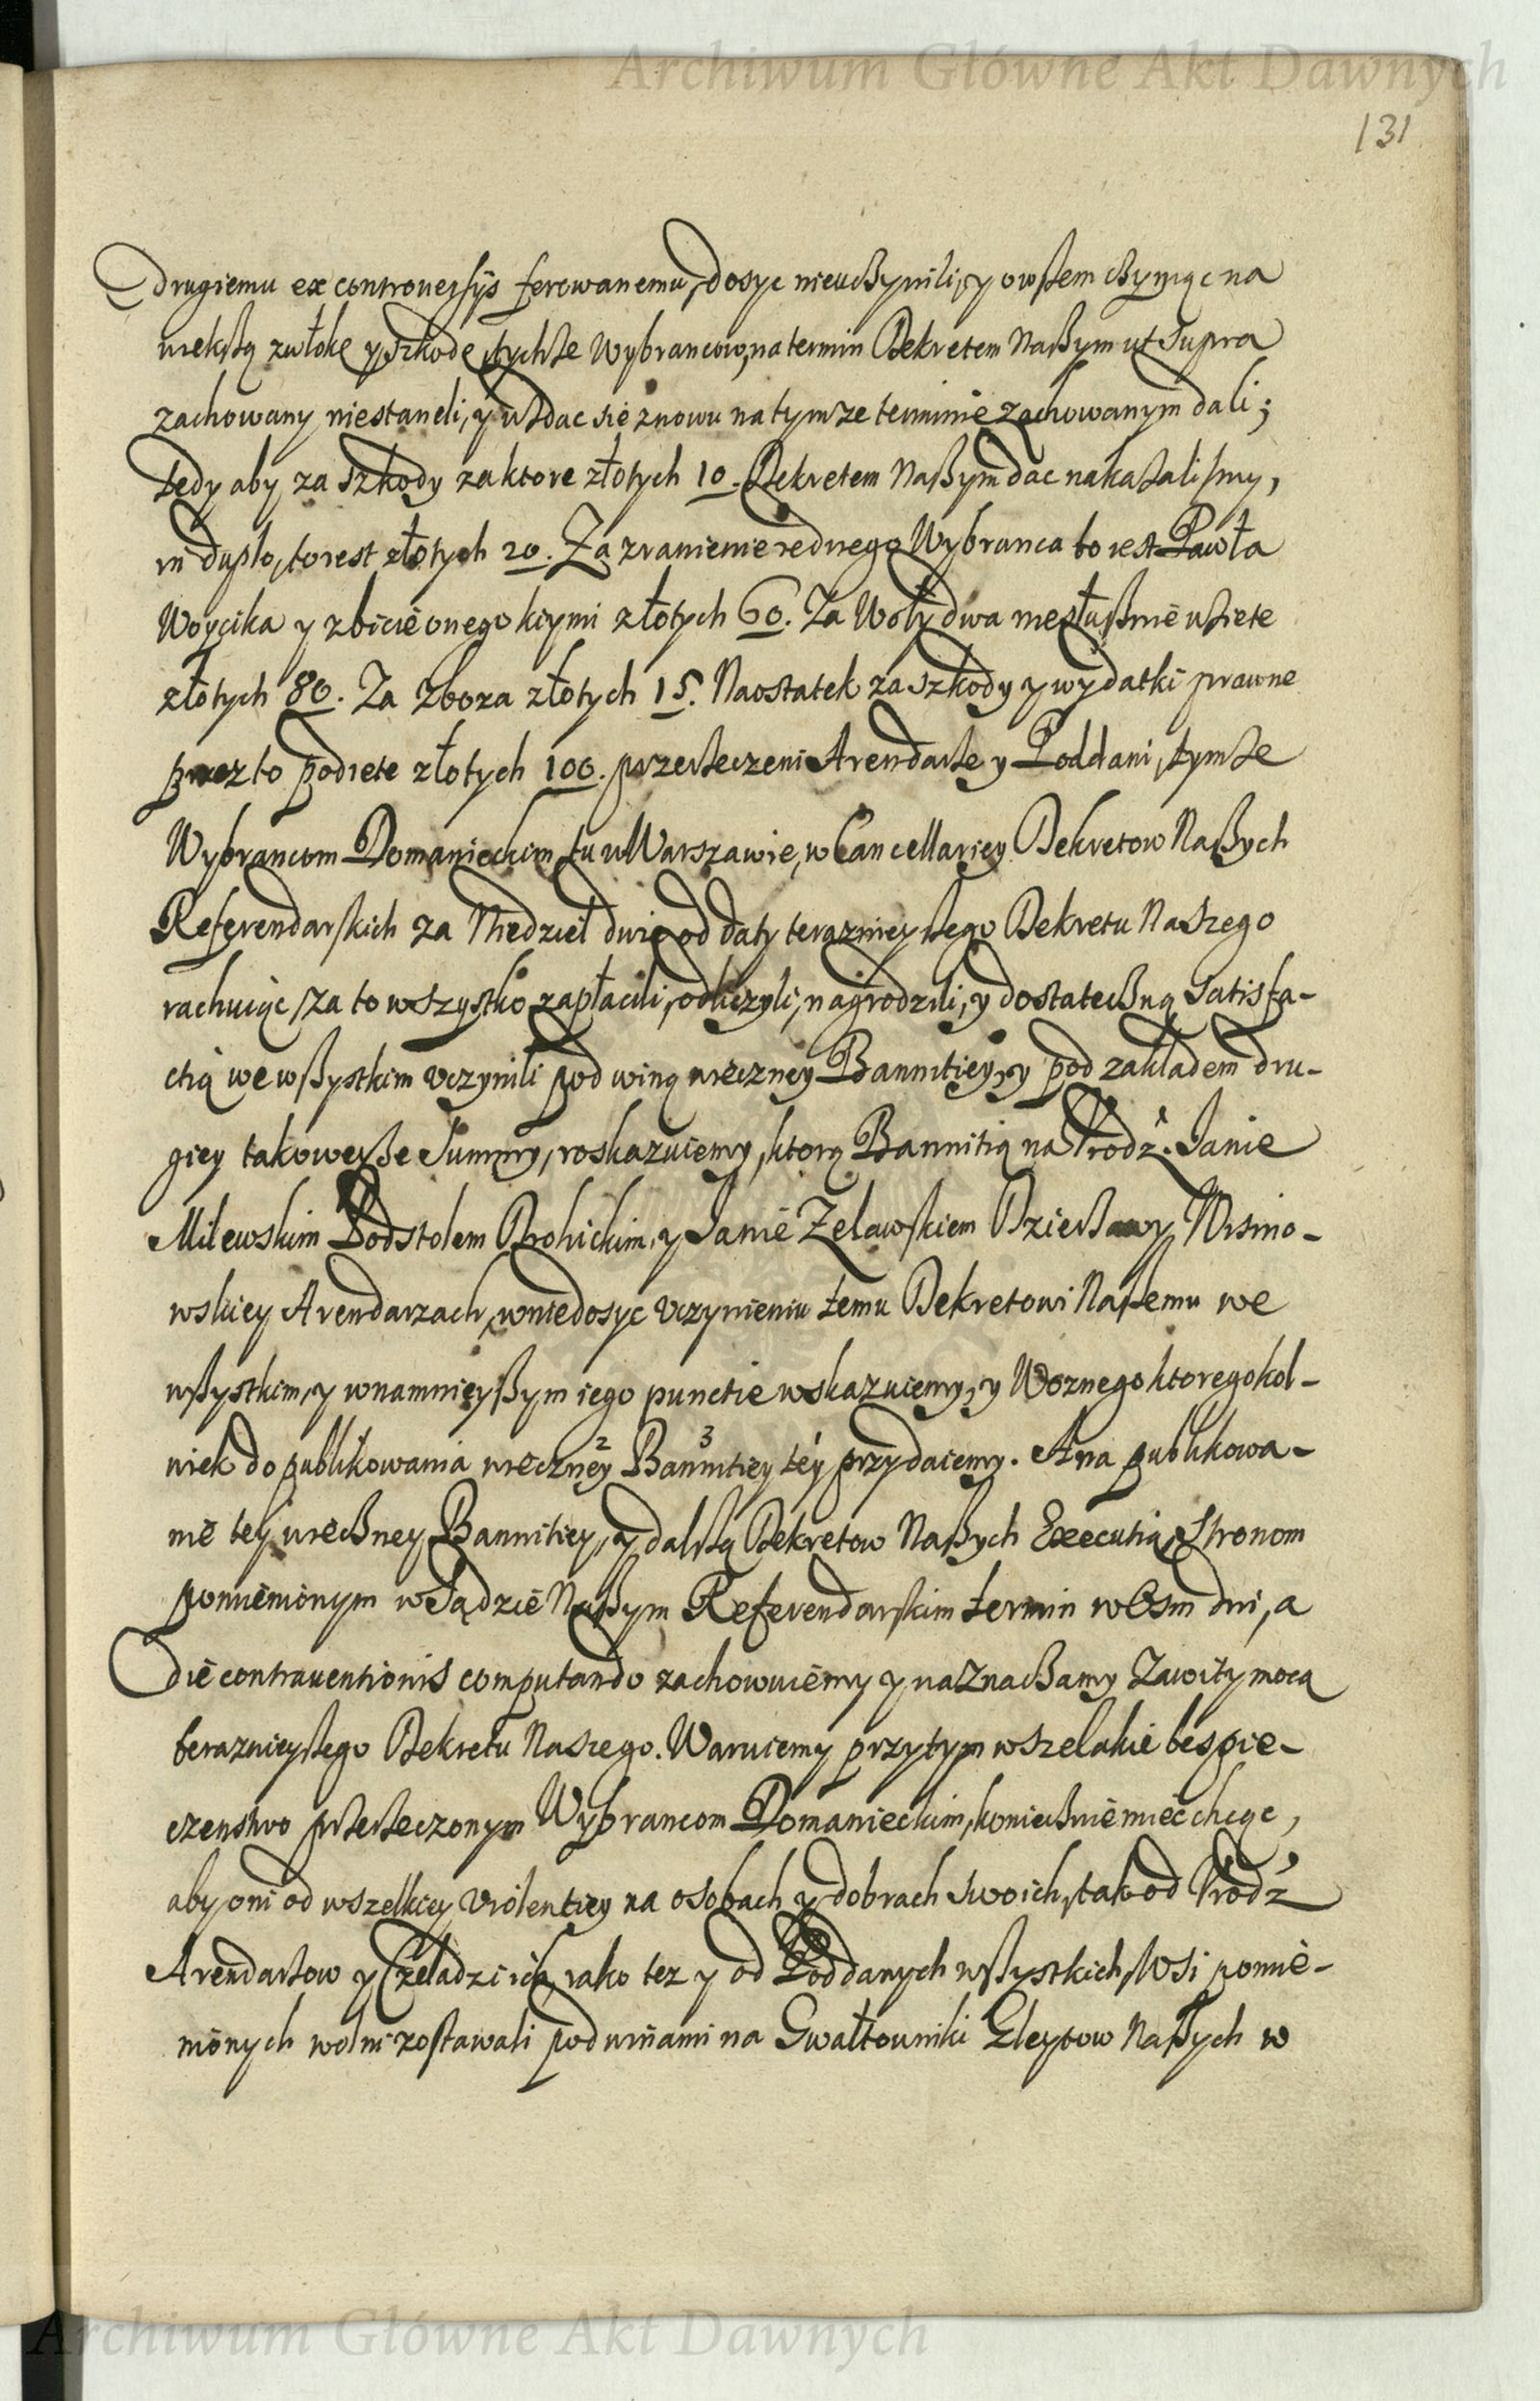 Archiwum Główne Akt Dawnych
131
drugiemu ex controuersijs ferowanemu, dosyc nieuczynili, y owßem czyniąc na
więkßą zwłokę y szkodę tychże Wybrancow, na termin Dekretem Naßym ut supra
zachowany niestaneli, y wzdac się znowu na tymze terminie zachowanym dali;
tedy aby za szkody za ktore złotych 10. Dekretem Naßym dac nakazalismy,
in duplo, to iest złotych 20. Za zranienie iednego Wybranca to iest Pawła
Woycika y zbicie onego kiymi złotych 60. Za Woły dwa niesłußnie wziete
złotych 80. Za Zboza złotych 15. Naostatek za szkody y wydatki prawne
przez to podiete złotych 100. przerzeczeni Arendarze y Poddani, tymże
Wybrancom Domanieckim tu w Warszawie, w Cancellariey Dekretow Naßych
Referendarskich za Niedziel dwie od daty terazniejßego Dekretu Naszego
rachuiąc, za to wszystko zapłacili, odliczyli, nagrodzili, y dostateczną Satisfa-
ctią we wßystkim vczynili pod winą wieczney Bannitiey, y pod zakładem dru-
giey takoweyże Summy, roskazuiemy, ktorą Bannitią na Vrodz. Janie
Milewskim Podstolem Drohickim, y Janie Zelawskiem Dzierżawy Wisnio-
wskiey Arendarzach, w niedosyc vczynieniu temu Dekretowi Naßemu we
wßystkim, y w namnieyßym iego punctie wskazuiemy, y Woznego ktoregokol-
wiek do publikowania wieczney 2 Bannitiey 3 tey przydaiemy. A na publikowa-
nie tey wieczney Bannitiey, y dalßą Dekretow Naßych Executią, Stronom
pomienionym w Sądzie Naßym Referendarskim termin w Osm dni, a
die contrauentionis computando zachowuiemy y naznaczamy Zawity mocą
terazniejßego Dekretu Naszego. Waruiemy przytym wszelakie bespie-
czenstwo przerzeczonym Wybrancom Domanieckim, koniecznie miec chcąc,
aby oni od wszelkiey violentiey na osobach y dobrach swoich, tak od Vrodz
Arendarzow y Czeladzi ich, iako tez y od Poddanych wßystkich Wsi pomie-
nionych wolni zostawali pod winami na Gwałtowniki Gleytow Naßych w
Archiwum Główne Akt Dawnych